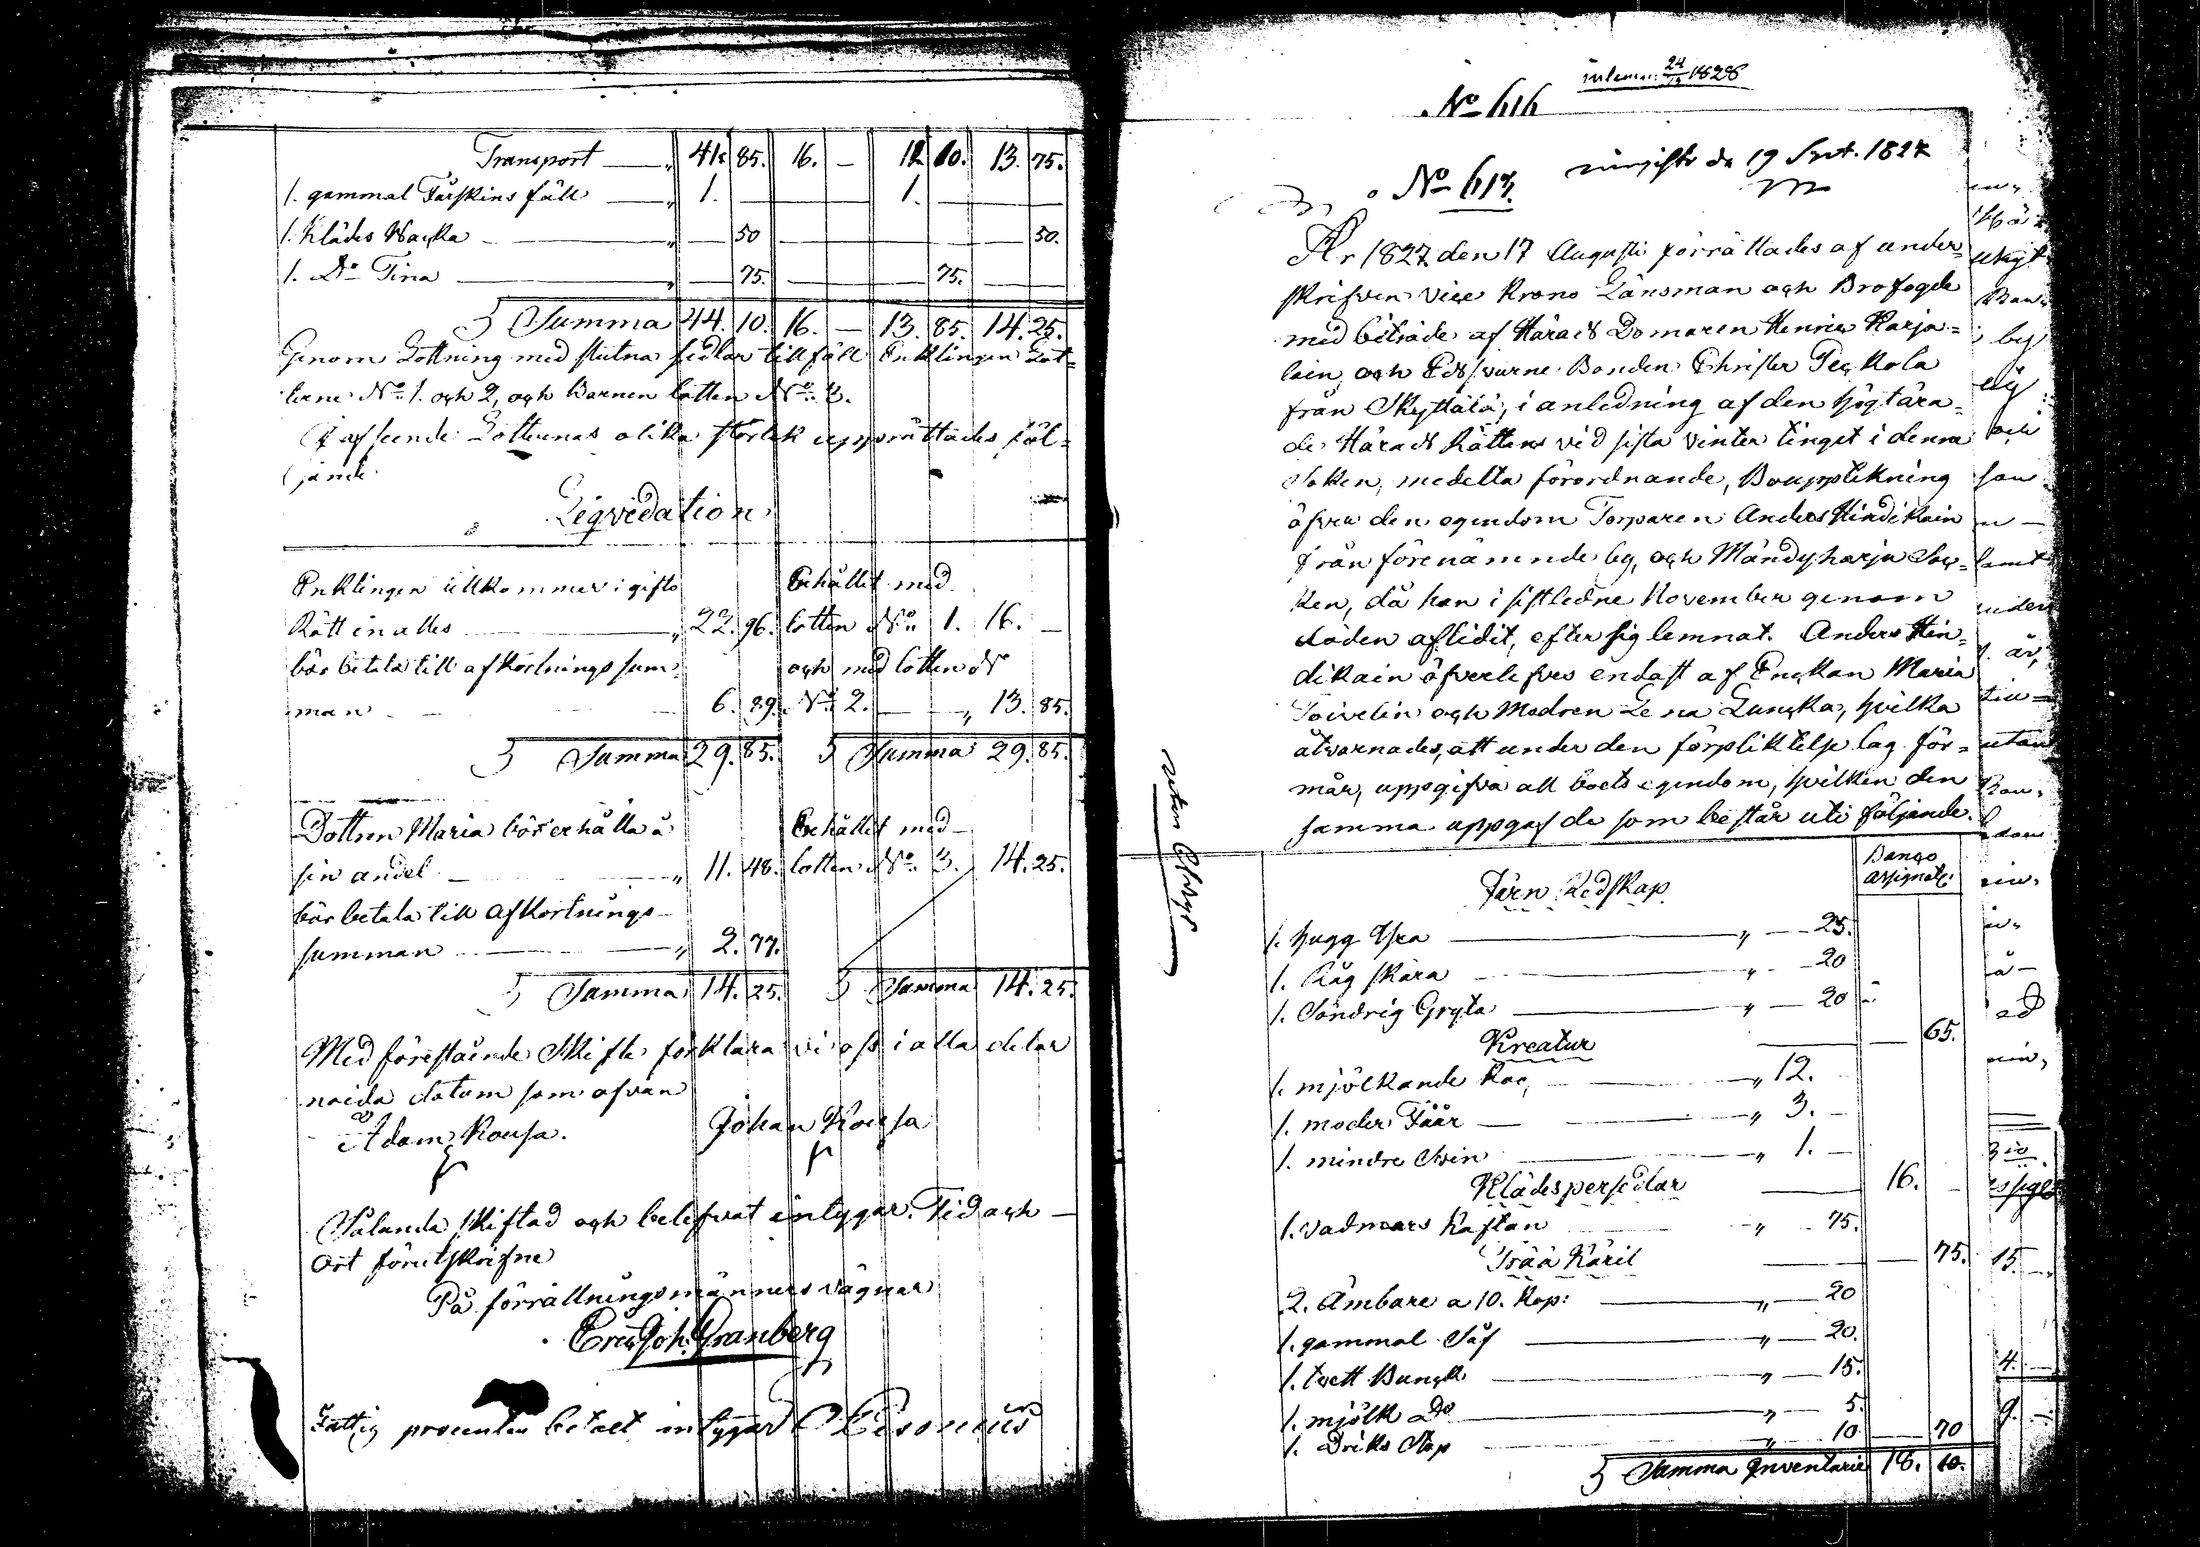 Transport — 41. 85. 16. — 12. 10. 13. 75.
1. gammal Fårskins fäll — 1. — 1. —
1. Kläds Wacka — 50 — 50.
1. Do Tina — 75. — 75. —
Summa 44. 10. 16. — 13. 85. 14. 25.
Genom Lottning med slutna sedlar tillföll Enklingen Lot-
terne No 1. och 2, och Barnen lotten No 3.
I afseende Lotternas olika storlek upprättades föl-
jande
Liqvidation
Enklingen tillkommer i gifto
Rätt in alles — 22. 96.
bör betala till afkortnings sum-
man — 6. 89.
Summa 29. 85.
Behållit med
lotten No 1. 16. —
och med lotten N
No 2. — 13. 85.
Summa 29. 85.
Dottren Maria bör erhålla å
sin andel — 11. 48.
bör betala till afkortnings
summan — 2. 77.
Summa 14. 25.
Behållit med
lotten No 3. 14. 25.
Summa 14. 25.
Med förestående Skifte förklara vi oss i alla delar
nöida datum som ofvan
Adam Kousa. Johan Kousa
Sålunda skiftad och belefvat intygar. Tid och
ort förutskrifne
På förrättningsmänners vägnar
Eric Joh. Granberg
Fattig procenten betalt intygar
inlemn. 24/12 1828
No 616
No 613.
d. 19 Sept. 1827
År 1827 den 17 Augusti förrättades af under-
skrifven vice Krono Länsman och Brofogde
med biträde af Härads Domaren Henric Karja-
lain och Edsvurne Bonden Christer Peckola
från Skyttälä, i anledning af den högtära-
de Härads Rättens vid sista vinter tinget i denna
Soken, medelta förordnande, Bouppteckning
öfver den egendom Torparen Anders Hindikain
från förenämnde by, och Mändyharju Soc-
ken, då han i sistledne November genom
döden aflidit, efter sig lemnat. Anders Hin-
dikain öfverlefves endast af Enckan Maria
Toivelin och Modren Lena Luncka, hvilka
åtvarnades, att under den förpliktelse lag för-
mår, uppgifva all boets egendom, hvilken den
samma uppgaf de som består uti följande.
Banco
assignat.
Järn Redskap
1. hugg Yxa — 25.
1. Råg skära — 20
1. Söndrig Gryta — 20
— 65.
Kreatur
1. mjölkande Ko — 12.
1. moder Fåår — 3. —
1. mindre Svin — 1. —
16. —
Klädespersedlar
1. vadmars Kaftan — 75.
— 75.
Trää Käril
2. Ämbare a 10. Kop: — 20
1. gammal Så — 20.
1. tvett Bunck — 15.
1. mjölk Do — 5.
1. Dricks Stop — 10 — 70
Summa Inventarie 18. 10.